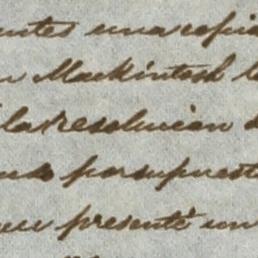 entes una copia
n Mackintosh l
la resolucion d
por supuest
presenté un